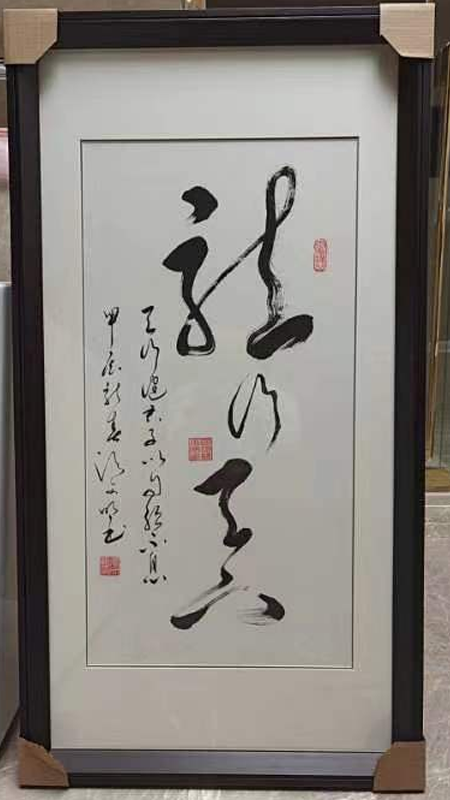 龍行天下
天行健君子以自強不息
甲辰春